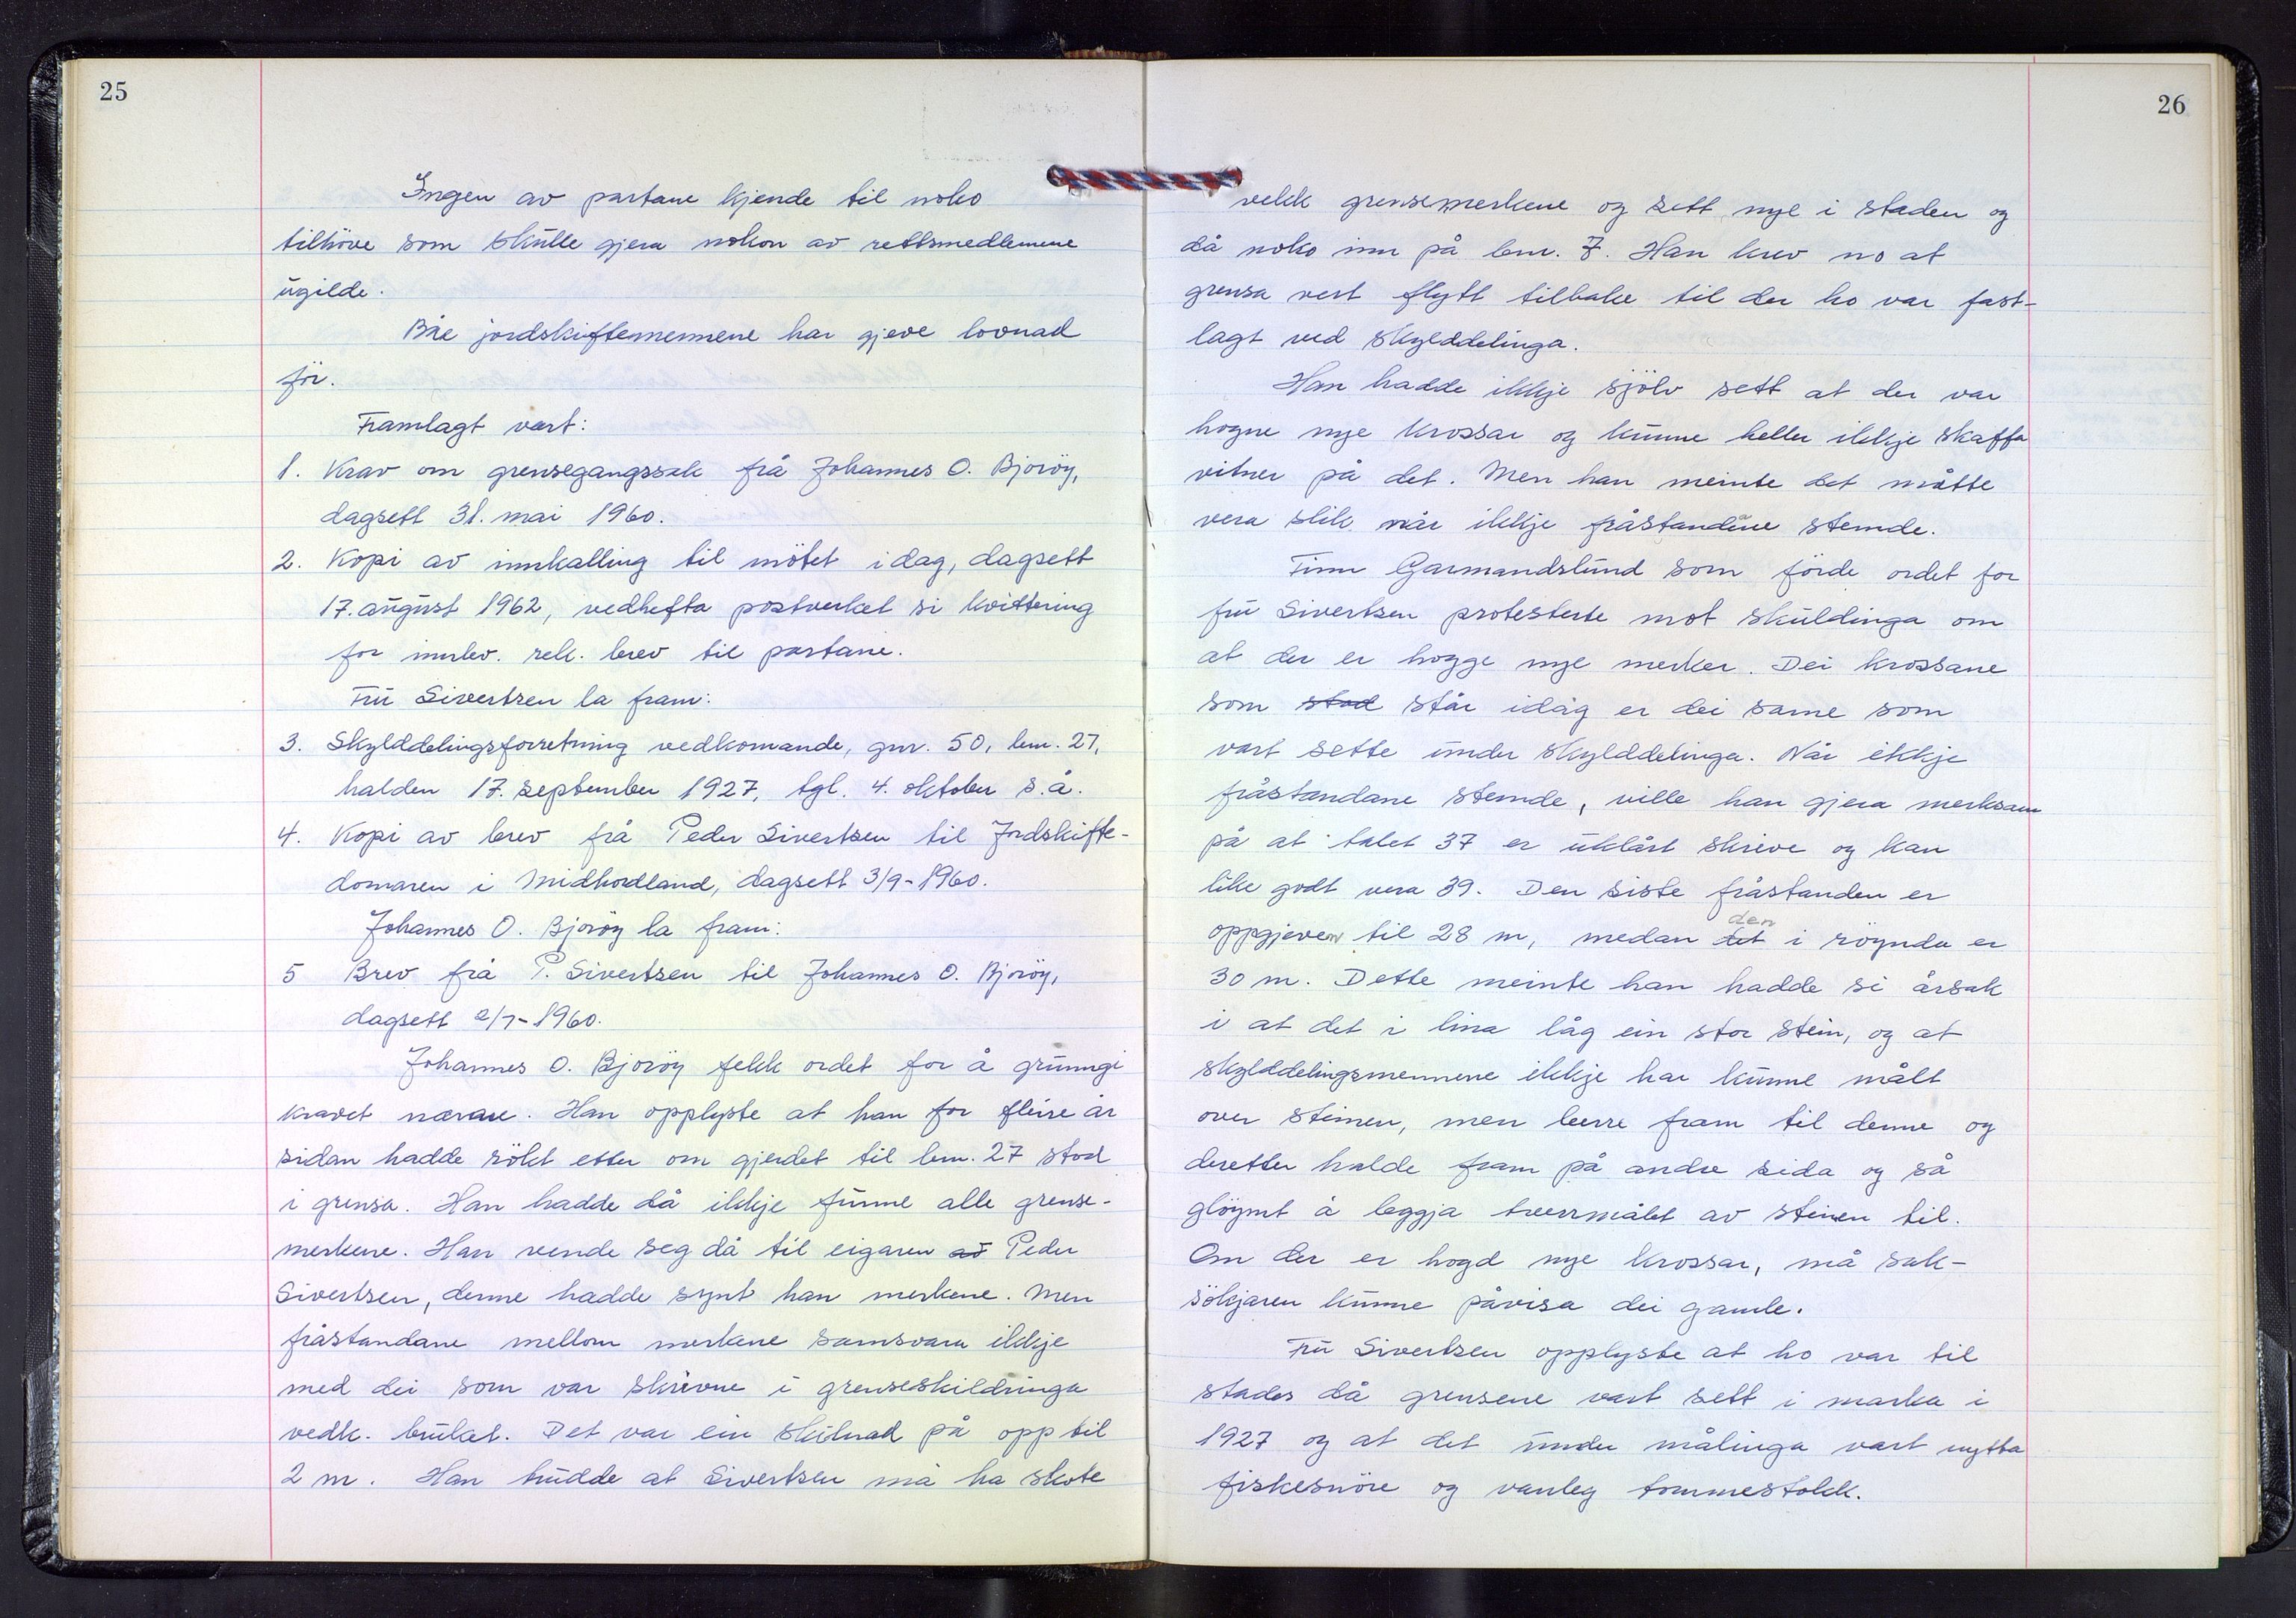 25
Ingen av partane kjende til noko
tilhöve som skulle gjera nokon av rettsmedlemene
ugilde.
Båe jordskiftemennene har gjeve lovnad
för.
Framlagt vart:
1. Krav om grensegangssak frå Johannes O. Bjoröy,
dagsett 31. mai 1960.
2. Kopi av innkalling til mötet i dag, dagsett
17. august 1962, vedhefta postverket si kvittering
for innlev. rek. brev til partane.
Fru Sivertsen la fram:
3. Skylddelingsforretning vedkomande, gnr. 50, bnr. 27,
halden 17. september 1927, tgl. 4. oktober s.å.
4. Kopi av brev frå Peder Sivertsen til Jordskifte-
domaren i Midhordland, dagsett 3/9-1960.
Johannes O. Bjoröy la fram:
5 Brev frå P. Sivertsen til Johannes O. Bjoröy,
dagsett 2/7-1960.
Johannes O. Bjoröy fekk ordet for å grunngi
kravet nærare. Han opplyste at han for fleire år
sidan hadde sökt etter om gjerdet til bnr. 27 stod
i grensa. Han hadde då ikkje funne alle grense-
merkene. Han vende seg då til eigaren av Peder
Sivertsen, denne hadde synt han merkene. Men
fråstandane mellom merkene samsvara ikkje
med dei som var skrivne i grenseskildringa
vedk. bruket. Det var ein skilnad på opp til
2 m. Han trudde at Sivertsen må ha skote
26
vekk grensemerkene og sett nye i staden og
då noko inn på bnr. 7. Han krev no at
grensa vert flytt tilbake til der ho var fast-
lagt ved skylddelinga.
Han hadde ikkje sjölv sett at der var
hogne nye krossar og kunne heller ikkje skaffa
vitner på det. Men han meinte det måtte
vera slik når ikkje fråstandane stemde.
Finn Garmandslund som förde ordet for
fru Sivertsen protesterte mot skuldinga om
at der er hogge nye merker. Dei krossane
som stod står idag er dei same som
vart sette under skylddelinga. Når ikkje
fråstandane stemde, ville han gjera merksam
på at talet 37 er uklårt skrive og kan
like godt vera 39. Den siste fråstanden er
den
oppgjeven til 28 m, medan det i röynda er
30 m. Dette meinte han hadde si årsak
i at det i lina låg ein stor stein, og at
skylddelingsmennene ikkje har kunne målt
over steinen, men berre fram til denne og
deretter halde fram på andre sida og så
glöymt å leggja tverrmålet av steinen til.
Om der er hogd nye krossar, må sak-
sökjaren kunne påvisa dei gamle.
Fru Sivertsen opplyste at ho var til
stades då grensene vart sett i marka i
1927 og at det under målinga vart nytta
fiskesnöre og vanleg tommestokk.